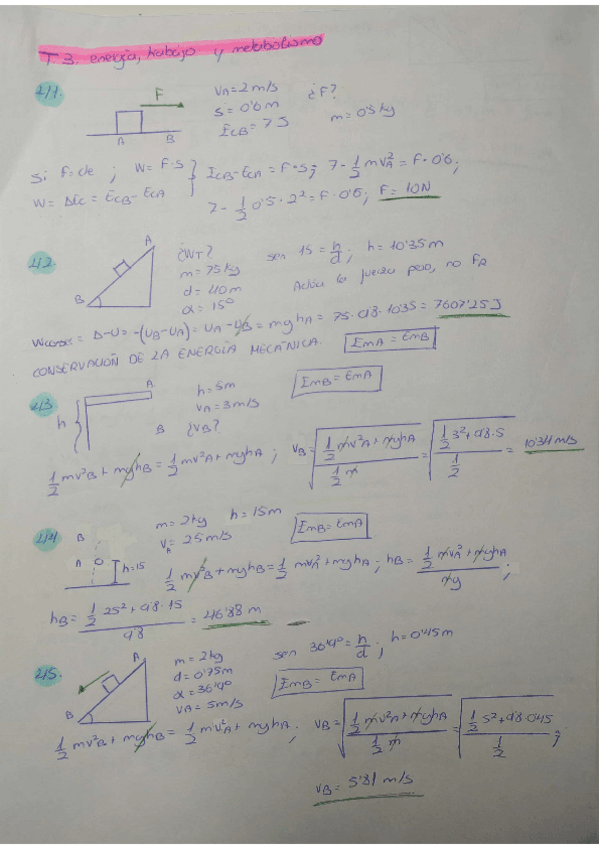 T.3. energía, trabajo y metabolismo
2/1.
F
A B
VA = 2 m/s
S = 0'6 m
ECB = 7 J
¿F?
m = 0'5 kg
Si F = cte ; W = F·S
W = ΔEc = ECB - ECA
ECB - ECA = F·S; 7 - 1/2 mVA² = F·0'6;
7 - 1/2 0'5 · 2² = F · 0'6; F = 10N
2/2.
A
B
¿WT?
m = 75 kg
d = 40 m
α = 15°
sen 15 = h/d; h = 10'35 m
Actúa la fuerza peso, no FR
Wconser = Δ-U = -(UB - UA) = UA - UB = mghA = 75 · 9'8 · 10'35 = 7607'25 J
CONSERVACIÓN DE LA ENERGÍA MECÁNICA. EmA = EmB
2/3
h
A
B
h = 5m
VA = 3 m/s
¿VB?
EmB = EmA
1/2 mv²B + mghB = 1/2 mv²A + mghA ; VB = √((1/2 mv²A + mghA)/(1/2 m)) = √((1/2 3² + 9'8·5)/(1/2)) = 10'34 m/s
2/4
B
A
h=15
m = 2 kg h = 15 m
VA = 25 m/s
EmB = EmA
1/2 mv²B + mghB = 1/2 mvA² + mghA ; hB = (1/2 mvA² + mghA)/(mg) ;
hB = (1/2 25² + 9'8 · 15)/9'8 = 46'88 m
2/5.
A
B
m = 2 kg
d = 0'75 m
α = 36'9°
VA = 5 m/s
sen 36'9° = h/d ; h = 0'45 m
EmB = EmA
1/2 mv²B + mghB = 1/2 mv²A + mghA ; VB = √((1/2 mv²A + mghA)/(1/2 m)) = √((1/2 5² + 9'8·0'45)/(1/2)) ;
VB = 5'81 m/s